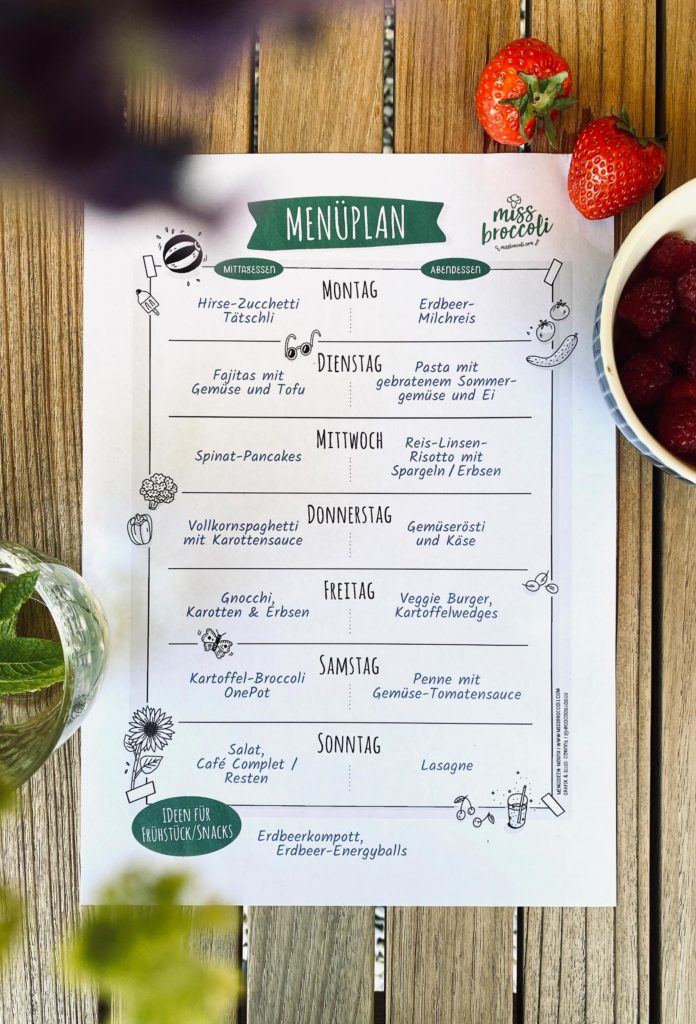 MENÜPLAN
miss
broccoli
missbroccoli.com
MITTAGESSEN
ABENDESSEN
MONTAG
Hirse-Zucchetti
Tätschli
Erdbeer-
Milchreis
DIENSTAG
Fajitas mit
Gemüse und Tofu
Pasta mit
gebratenem Sommer-
gemüse und Ei
MITTWOCH
Spinat-Pancakes
Reis-Linsen-
Risotto mit
Spargeln / Erbsen
DONNERSTAG
Vollkornspaghetti
mit Karottensauce
Gemüserösti
und Käse
FREITAG
Gnocchi,
Karotten & Erbsen
Veggie Burger,
Kartoffelwedges
SAMSTAG
Kartoffel-Broccoli
OnePot
Penne mit
Gemüse-Tomatensauce
SONNTAG
Salat,
Café Complet /
Resten
Lasagne
IDeen FÜR
FRÜHSTÜCK/SNACKS
Erdbeerkompott,
Erdbeer-Energyballs
WWW.MISSBROCCOLI.COM